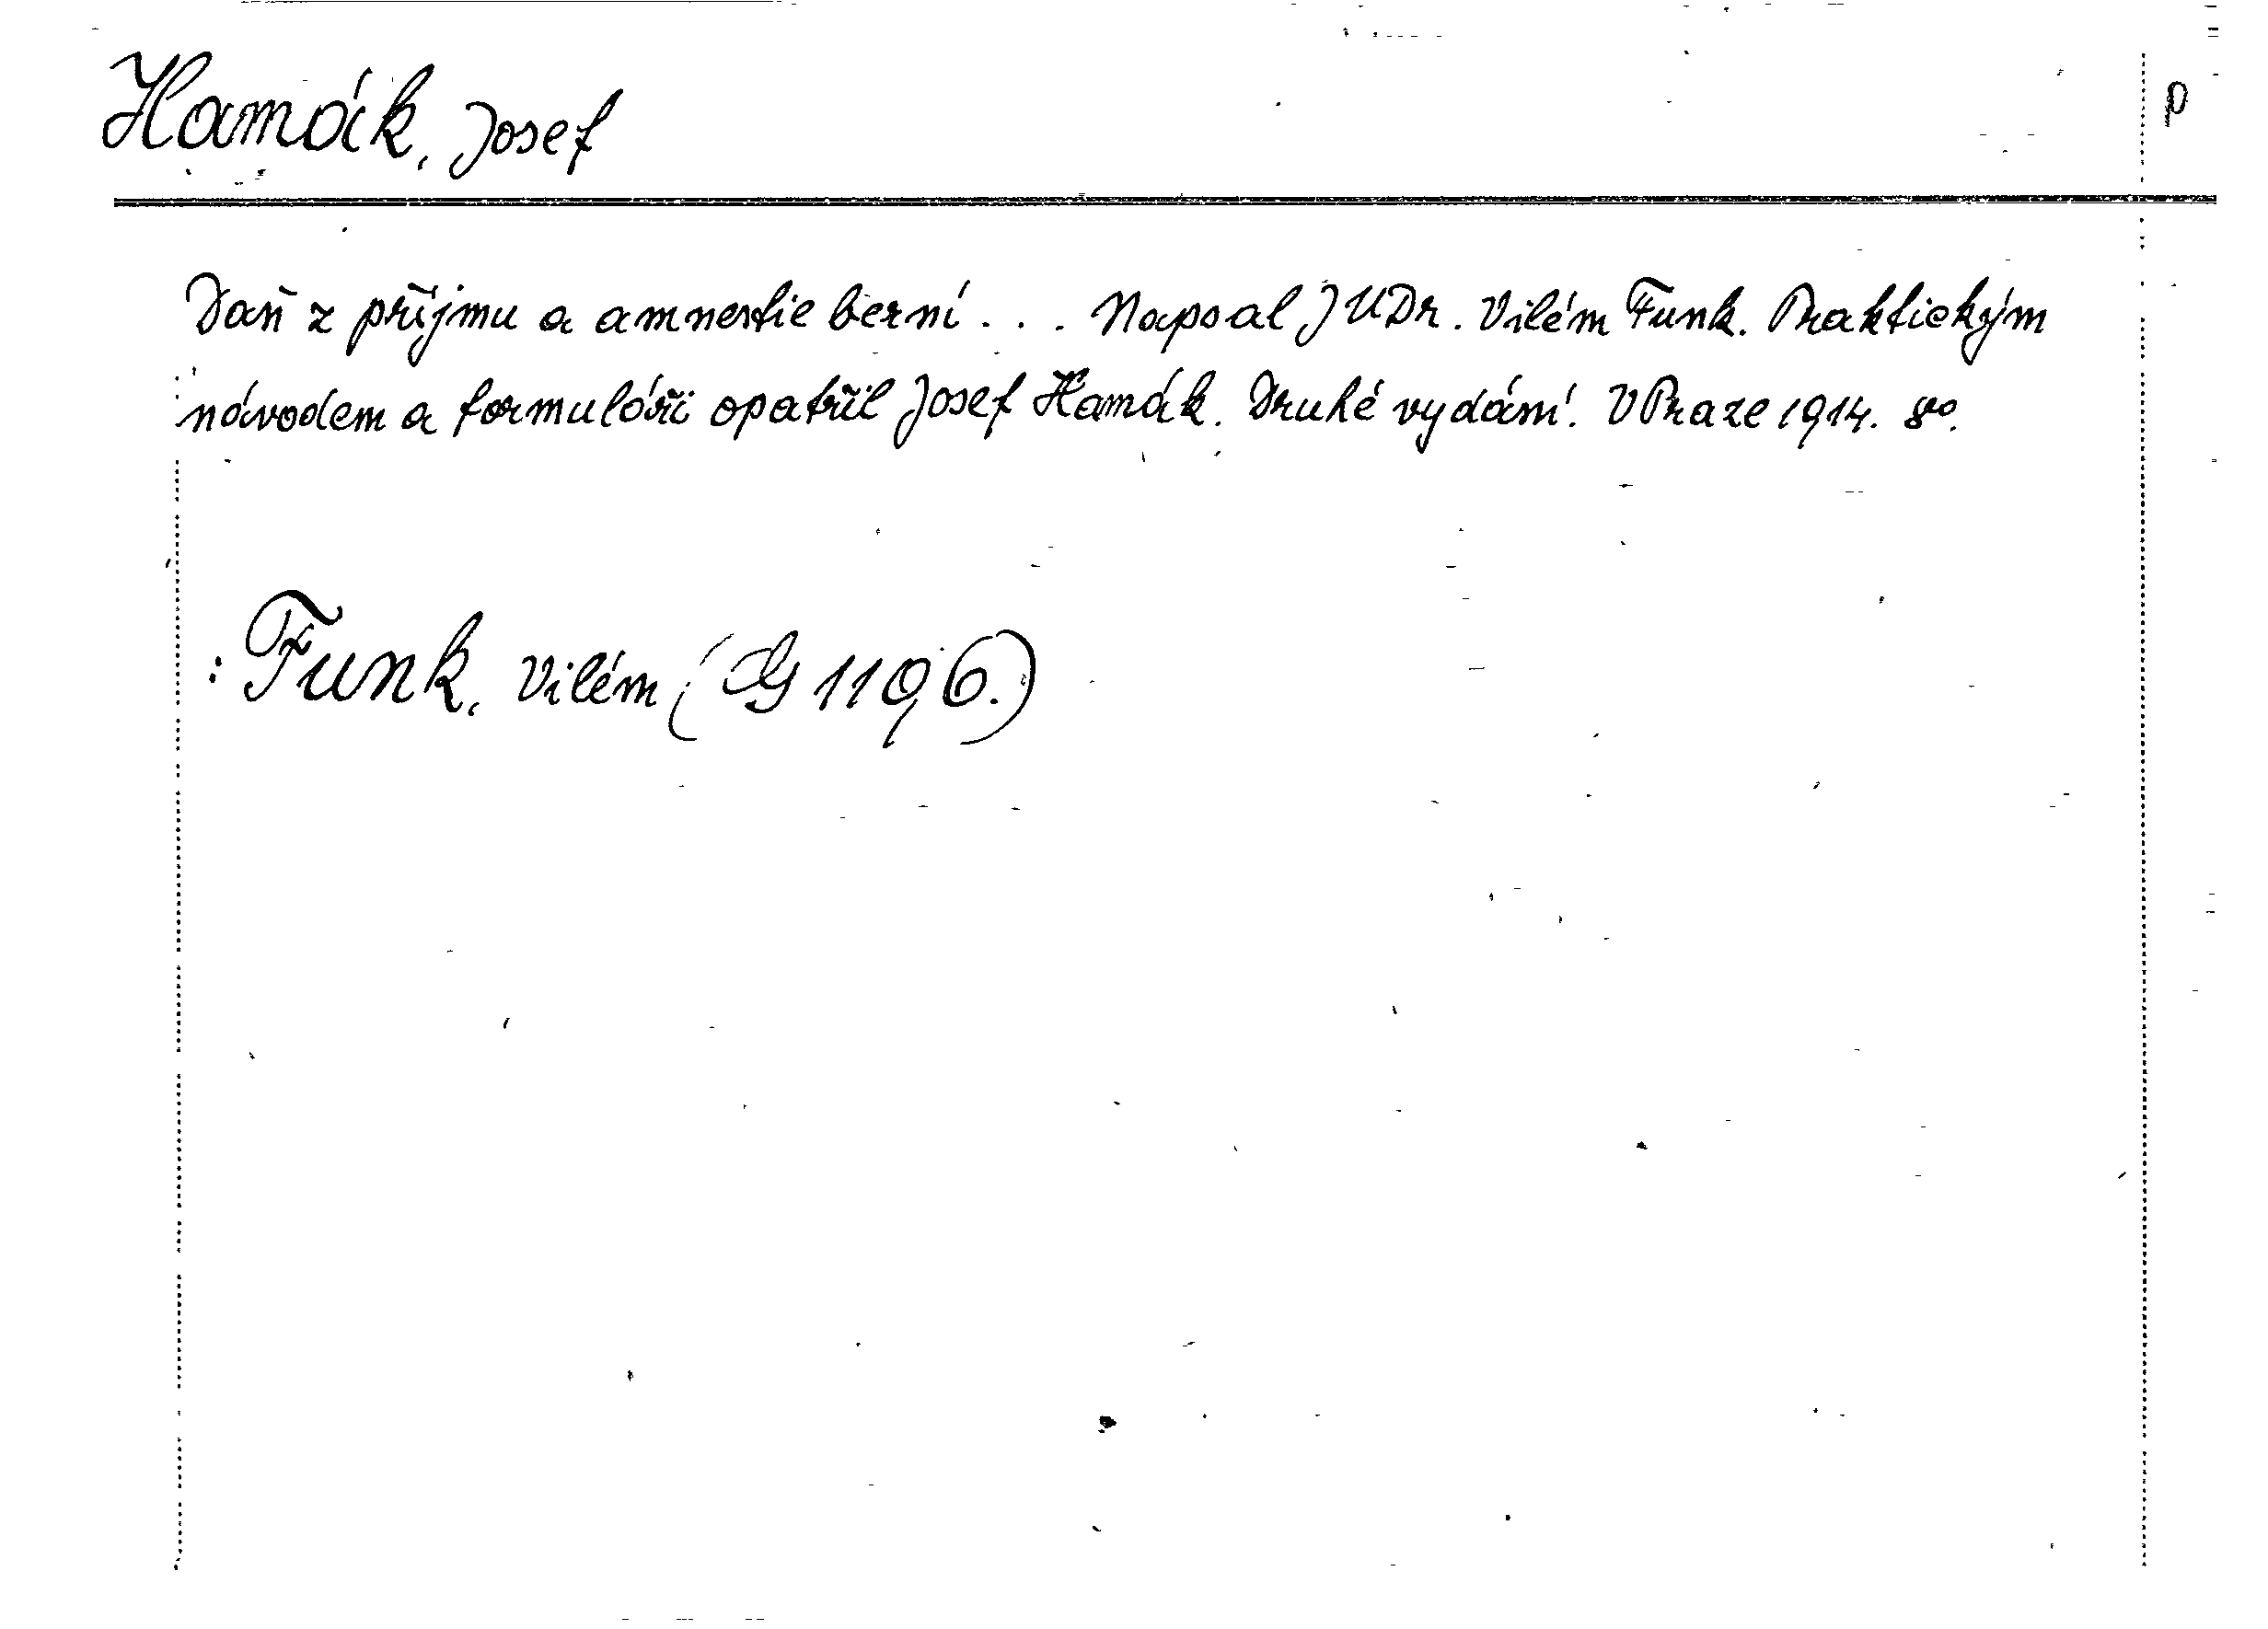 Hamák, Josef
p
Daň z příjmu a amnestie berní . . . Napsal JUDr. Vilém Funk. Praktickým
návodem a formuláři opatřil Josef Hamák. Druhé vydání. V Praze 1914. 8o.
: Funk, Vilém ( G 1196.)